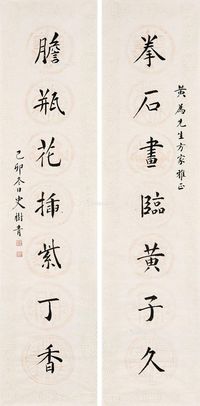 黄為先生方家雅正
拳石畫臨黃子久
膽瓶花插紫丁香
己卯冬日史樹青